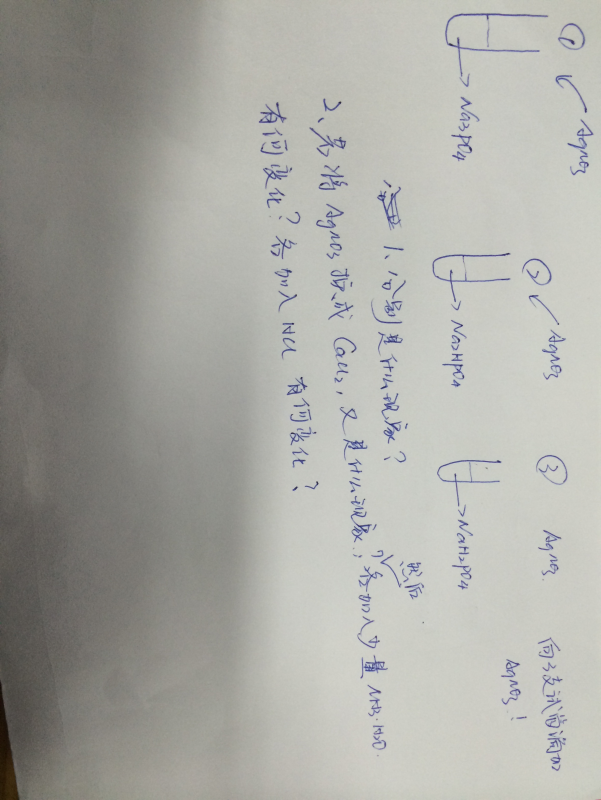 ① AgNO3
→Na3PO4
② AgNO3
→Na2HPO4
③ AgNO3.
→NaH2PO4
向3支试管滴加
AgNO3!
1、分别是什么现象?
2、若将AgNO3换成CaCl2,又是什么现象?然后各加入少量NH3·H2O.
有何变化?各加入HCl 有何变化?